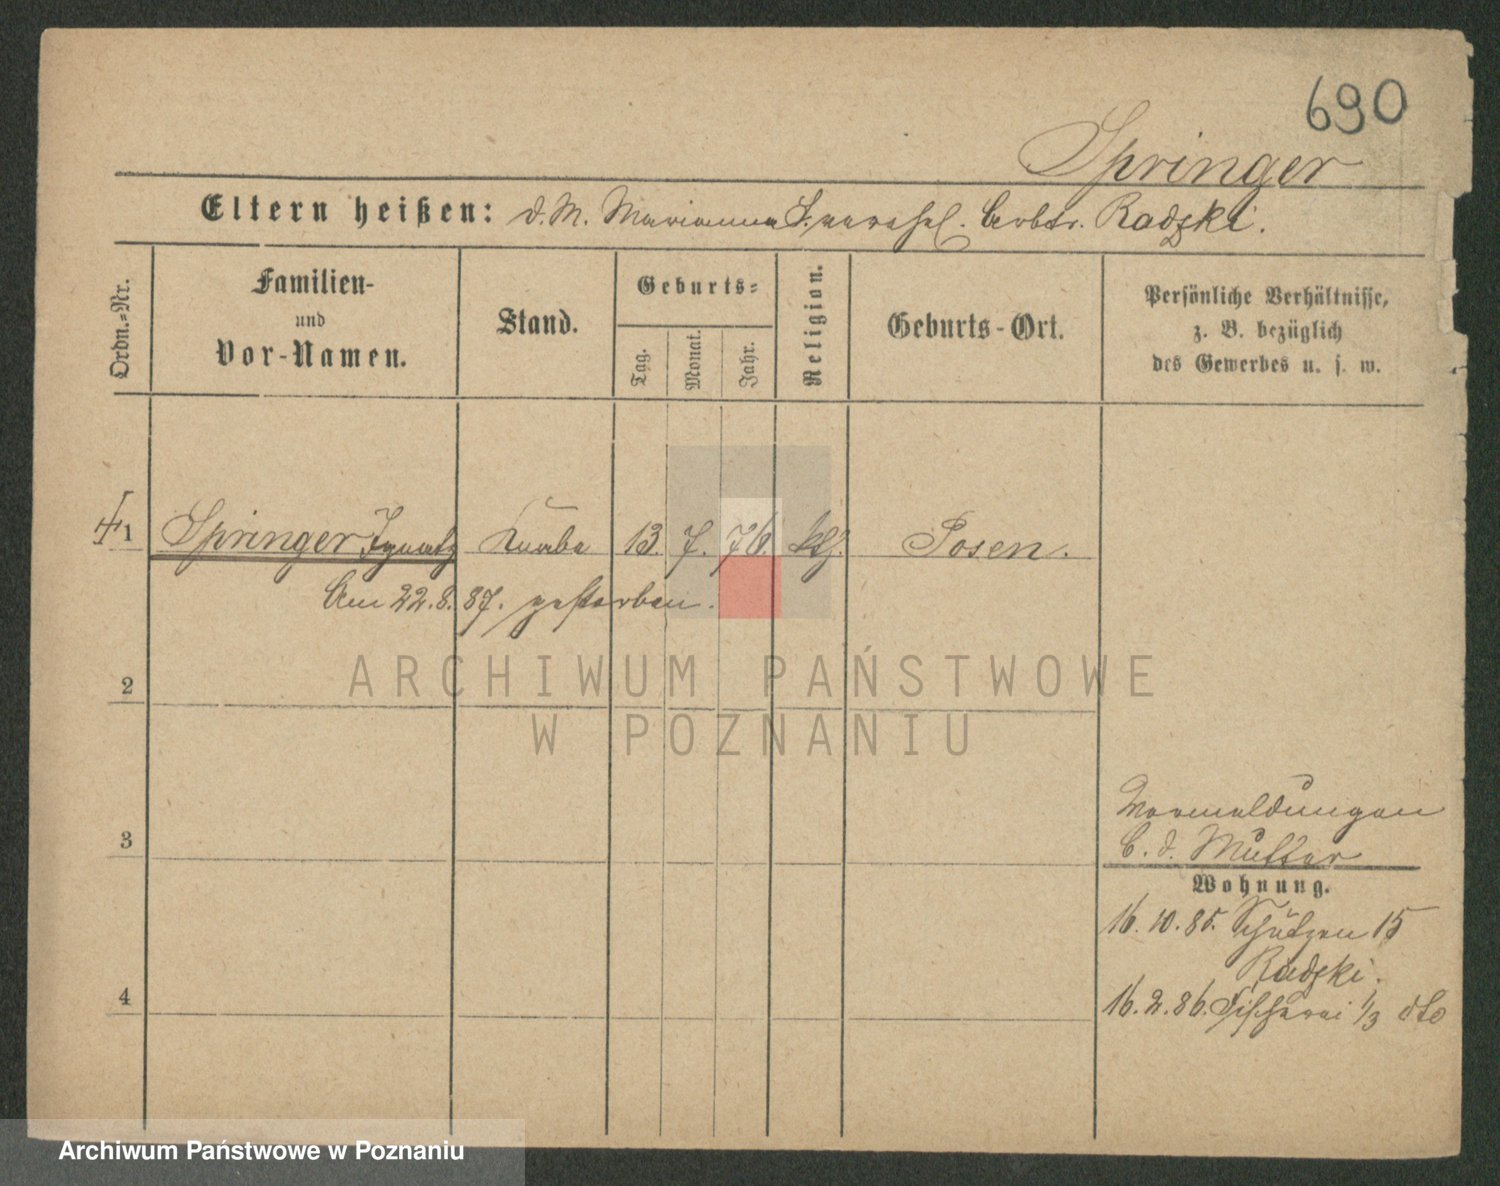 690
Springer
Eltern heißen: d. M. Marianna S. verehel. Arbtr. Radzki.
Ordn.=Nr.
Familien-
und
Vor-Namen.
Stand.
Geburts=
Tag.
Monat.
Jahr.
Religion.
Geburts-Ort.
Persönliche Verhältnisse,
z. B. bezüglich
des Gewerbes u. s. w.
1 Springer Ignatz Knabe 13. 7. 76. kth. Posen.
Am 22. 8. 87. gestorben.
ARCHIWUM PAŃSTWOWE
W POZNANIU
2
3
4
Vormeldungen
b. d. Mutter
Wohnung.
16. 10. 85. Schützen 15
Radzki.
16. 2. 86. Fischerei 1/3 dto
Archiwum Państwowe w Poznaniu